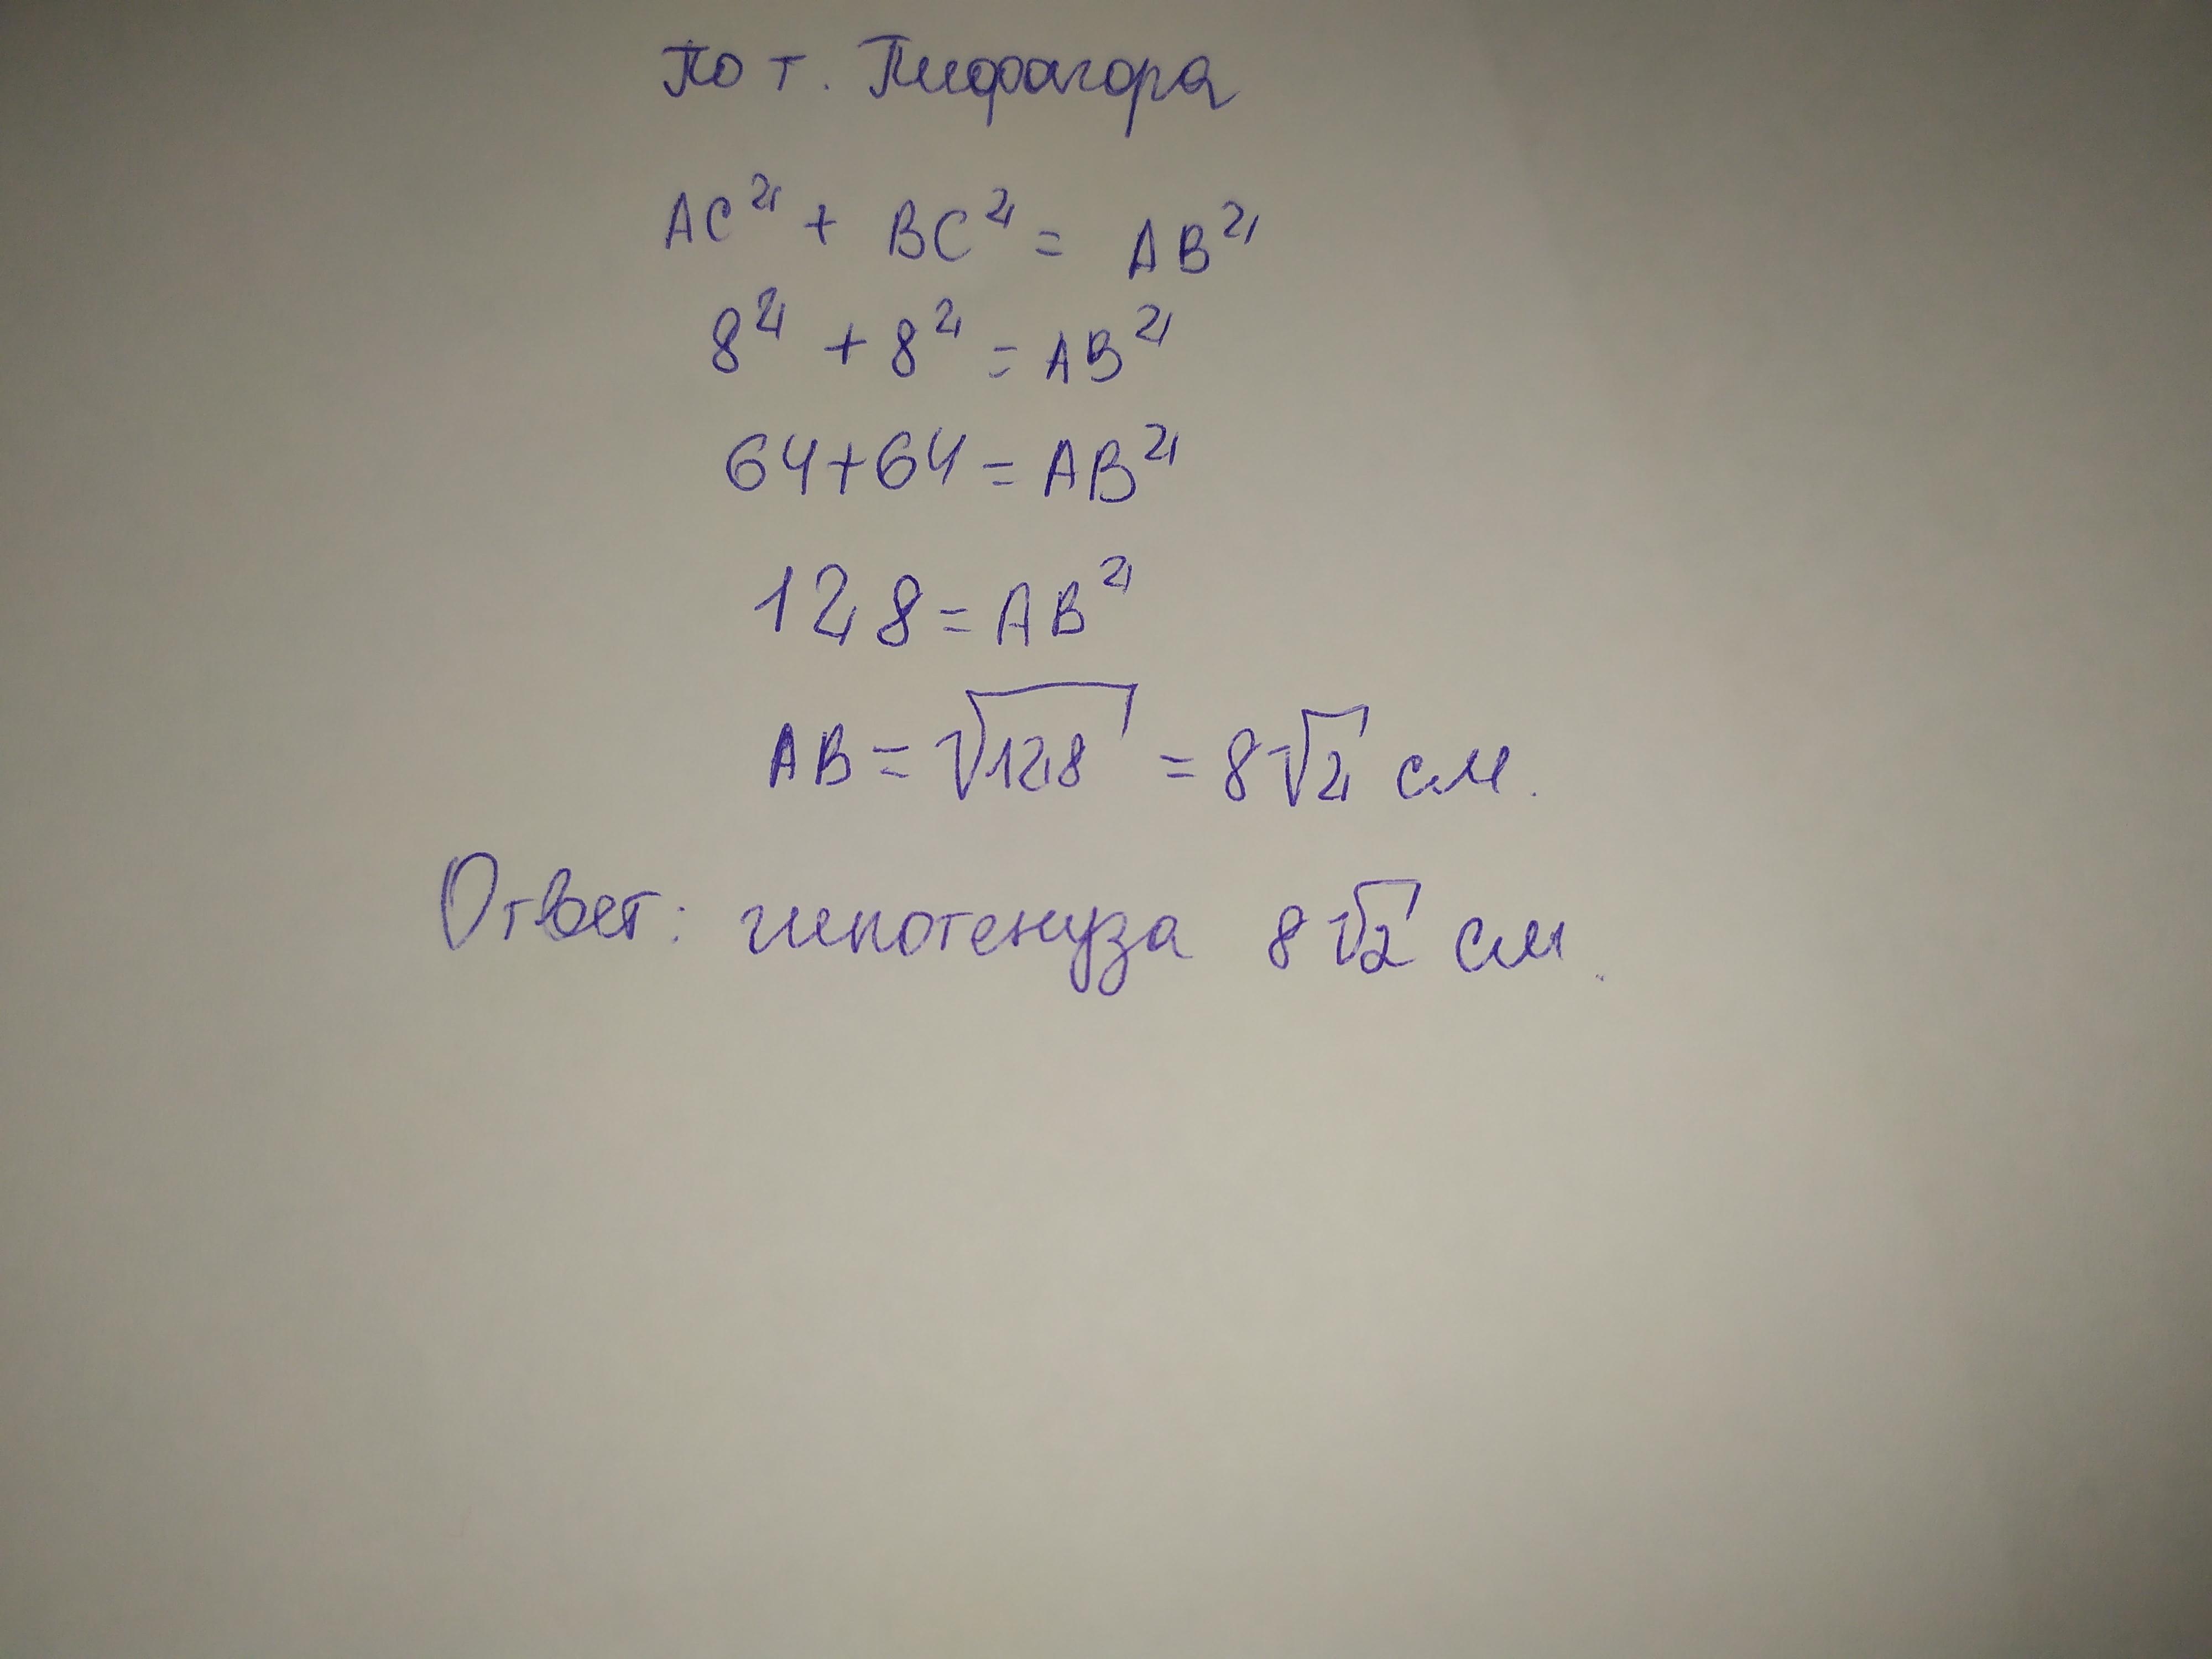 По т. Пифагора
AC² + BC² = AB²
8² + 8² = AB²
64+64 = AB²
128 = AB²
AB = √128 = 8√2 см.
Ответ: гипотенуза 8√2 см.